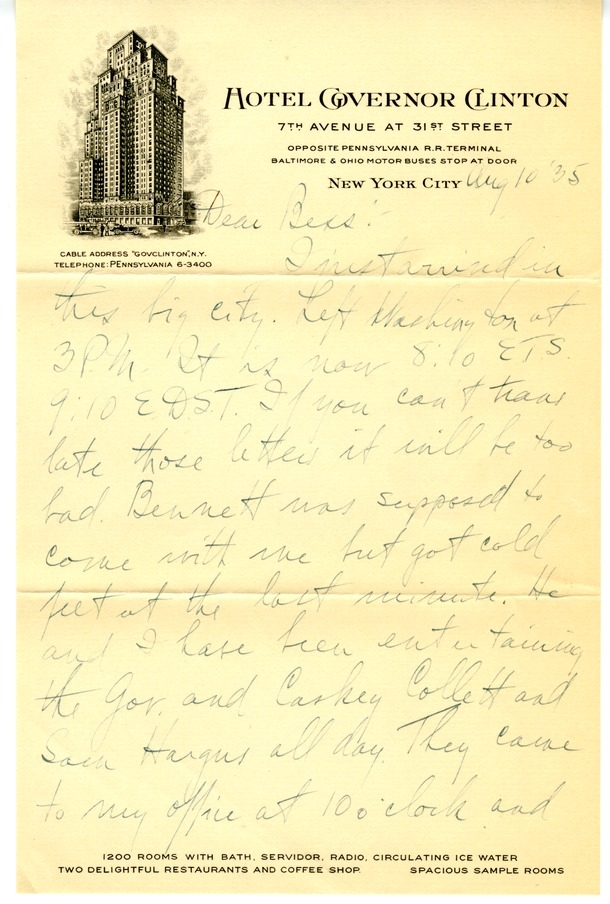 HOTEL GOVERNOR CLINTON
7TH AVENUE AT 31ST STREET
OPPOSITE PENNSYLVANIA R.R. TERMINAL
BALTIMORE & OHIO MOTOR BUSES STOP AT DOOR
NEW YORK CITY Aug 10 '35
CABLE ADDRESS "GOVCLINTON", N.Y.
TELEPHONE: PENNSYLVANIA 6-3400
Dear Bess:-
I just arrived in
this big city. Left Washington at
3 P.M. It is now 8:10 E.T.S.
9:10 E.D.S.T. If you can't trans
late those letters it will be too
bad. Bennett was supposed to
come with me but got cold
feet at the last minute. He
and I have been entertaining
the Gov. and Caskey Collett and
Sam Hargus all day. They came
to my office at 10 o'clock and
1200 ROOMS WITH BATH, SERVIDOR, RADIO, CIRCULATING ICE WATER
TWO DELIGHTFUL RESTAURANTS AND COFFEE SHOP. SPACIOUS SAMPLE ROOMS